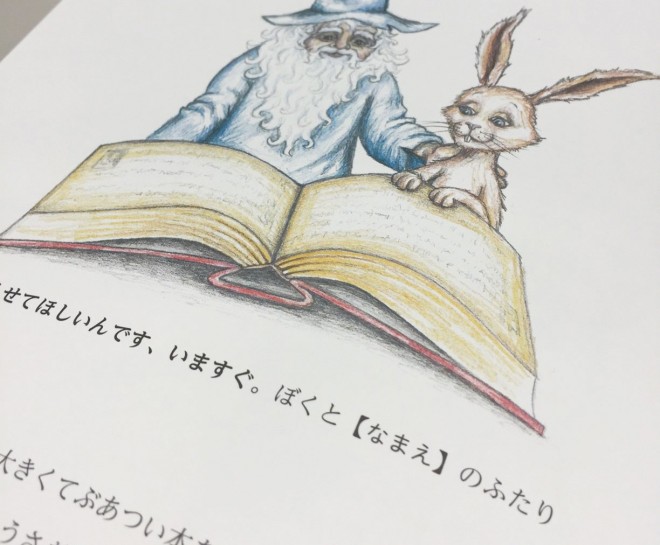 せてほしいんです、いますぐ。ぼくと【なまえ】のふたり
大きくてぶあつい本を
うさ